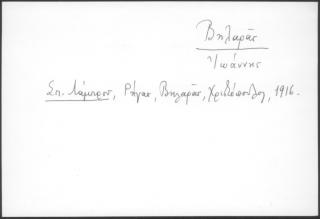 Βηλαρᾶς
Ἰωάννης
Σπ. Λάμπρου, Ρήγας, Βηλαρᾶς, Χριστόπουλος, 1916.